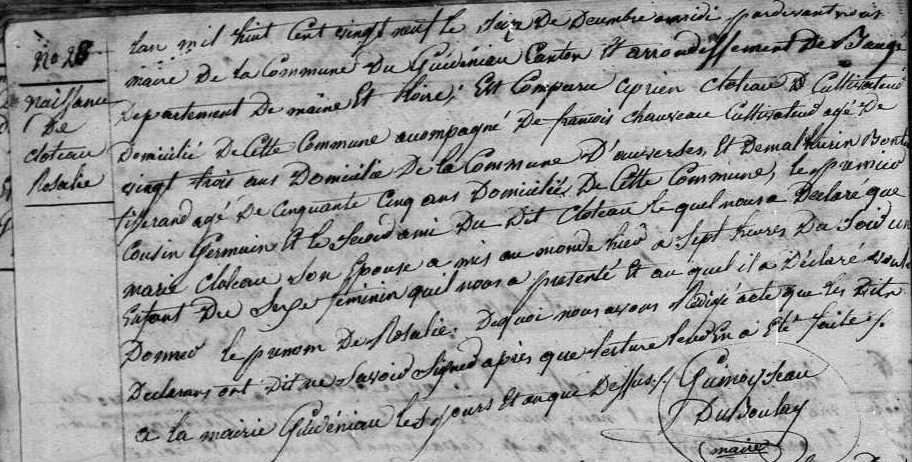 No 28
naissance
De
cloteau
Rosalie
Lan mil huit Cent vingt neuf le Seize De Decembre a midi pardevant nous
maire De la Commune Du Guédéniau Canton Et arrondissement De Baugé
Departement De maine Et Loire, Est Comparu Ciprien Cloteau Cultivateur
Domicilié De Cette Commune accompagné De francois chauveau Cultivateur agé De
vingt trois ans Domicilié De la Commune D'auverses, Et De mathurin
tisserand agé De Cinquante Cinq ans Domiciliés De Cette Commune, le premier
Cousin Germain Et le Second ami Du Dit Cloteau le quel nous a Declaré que
marie Cloteau Son Epouse a mis au monde hier a Sept heures Du Soir un
Enfant Du Sexe feminin quil nous a presenté Et au quel il a Déclaré vouloir
Donner le prenom De Rosalie. De quoi nous avons Redigé acte que les Dits
Declarans ont Dit ne Savoir Signer après que lecture leur En a Eté faite
a la mairie Guédéniau les jours Et an que Dessus.
Guinoyseau
DuBoulay
maire